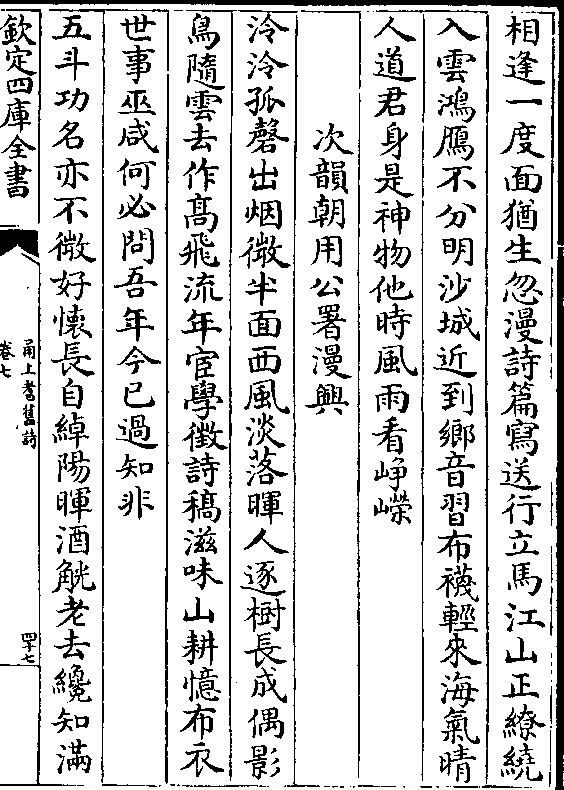 相逢一度面猶生忽漫詩篇寫送行立馬江山正繚繞
入雲鴻鴈不分明沙城近到鄉音習布襪輕來海氣晴
人道君身是神物他時風雨看崢嶸
次韻朝用公署漫興
泠泠孤磬出烟微半面西風淡落暉人逐樹長成偶影
鳥隨雲去作髙飛流年宦學徵詩稿滋味山耕憶布衣
世事巫咸何必問吾年今已過知非
五斗功名亦不微好懐長自綽陽暉酒觥老去纔知滿
欽定四庫全書
甬上耆舊詩
卷七
四十七